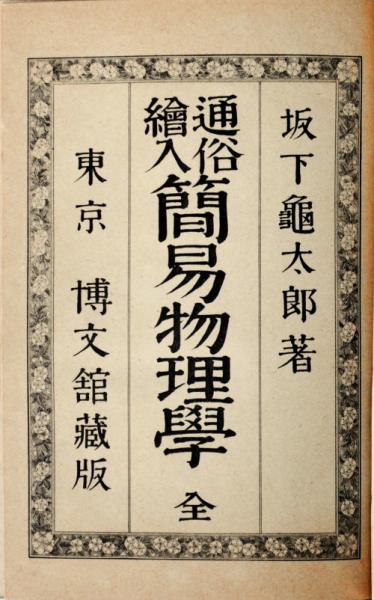 坂下龜太郎著
通俗
繪入
簡易物理學 全
東京 博文舘藏版